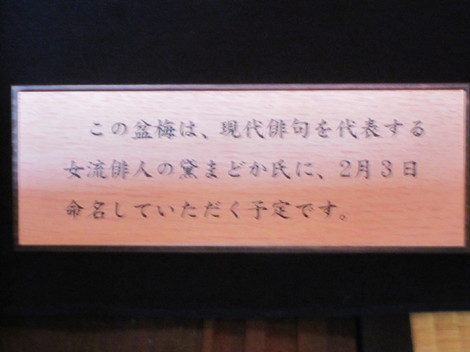 この盆梅は、現代俳句を代表する
女流俳人の黛まどか氏に、2月3日
命名していただく予定です。